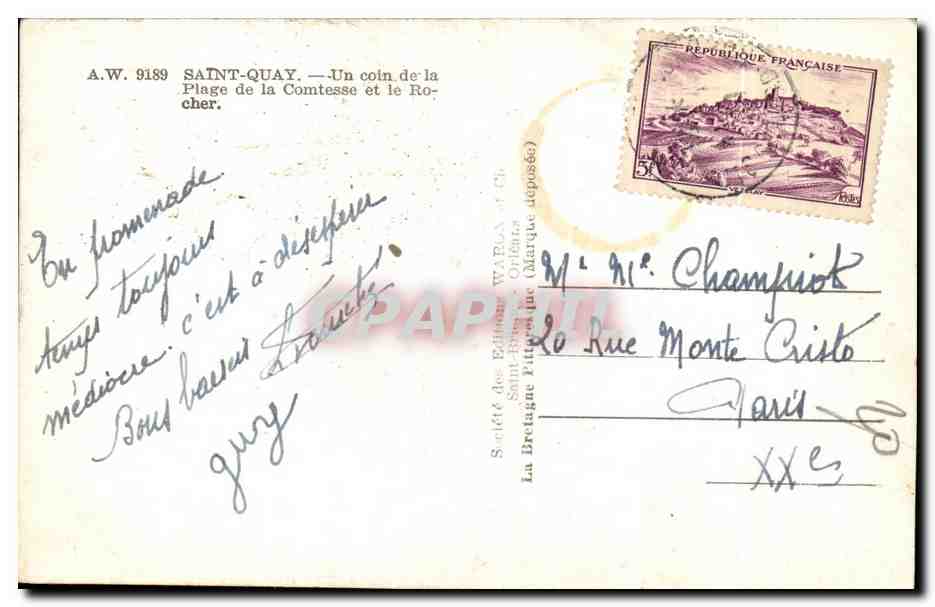 A.W. 9189 SAINT-QUAY. — Un coin de la
Plage de la Comtesse et le Ro-
cher.
En promenade
temps toujours
médiocre. c'est à désespérer
Bons baisers
guy
Société des Editions WARON
Saint-Brieuc - Orléans
La Bretagne Pittoresque (Marque déposée)
RÉPUBLIQUE FRANÇAISE
5F
VEZELAY
Postes
CPAPHIL
Mr Me Champiot
20 Rue Monte Cristo
Paris
XXes